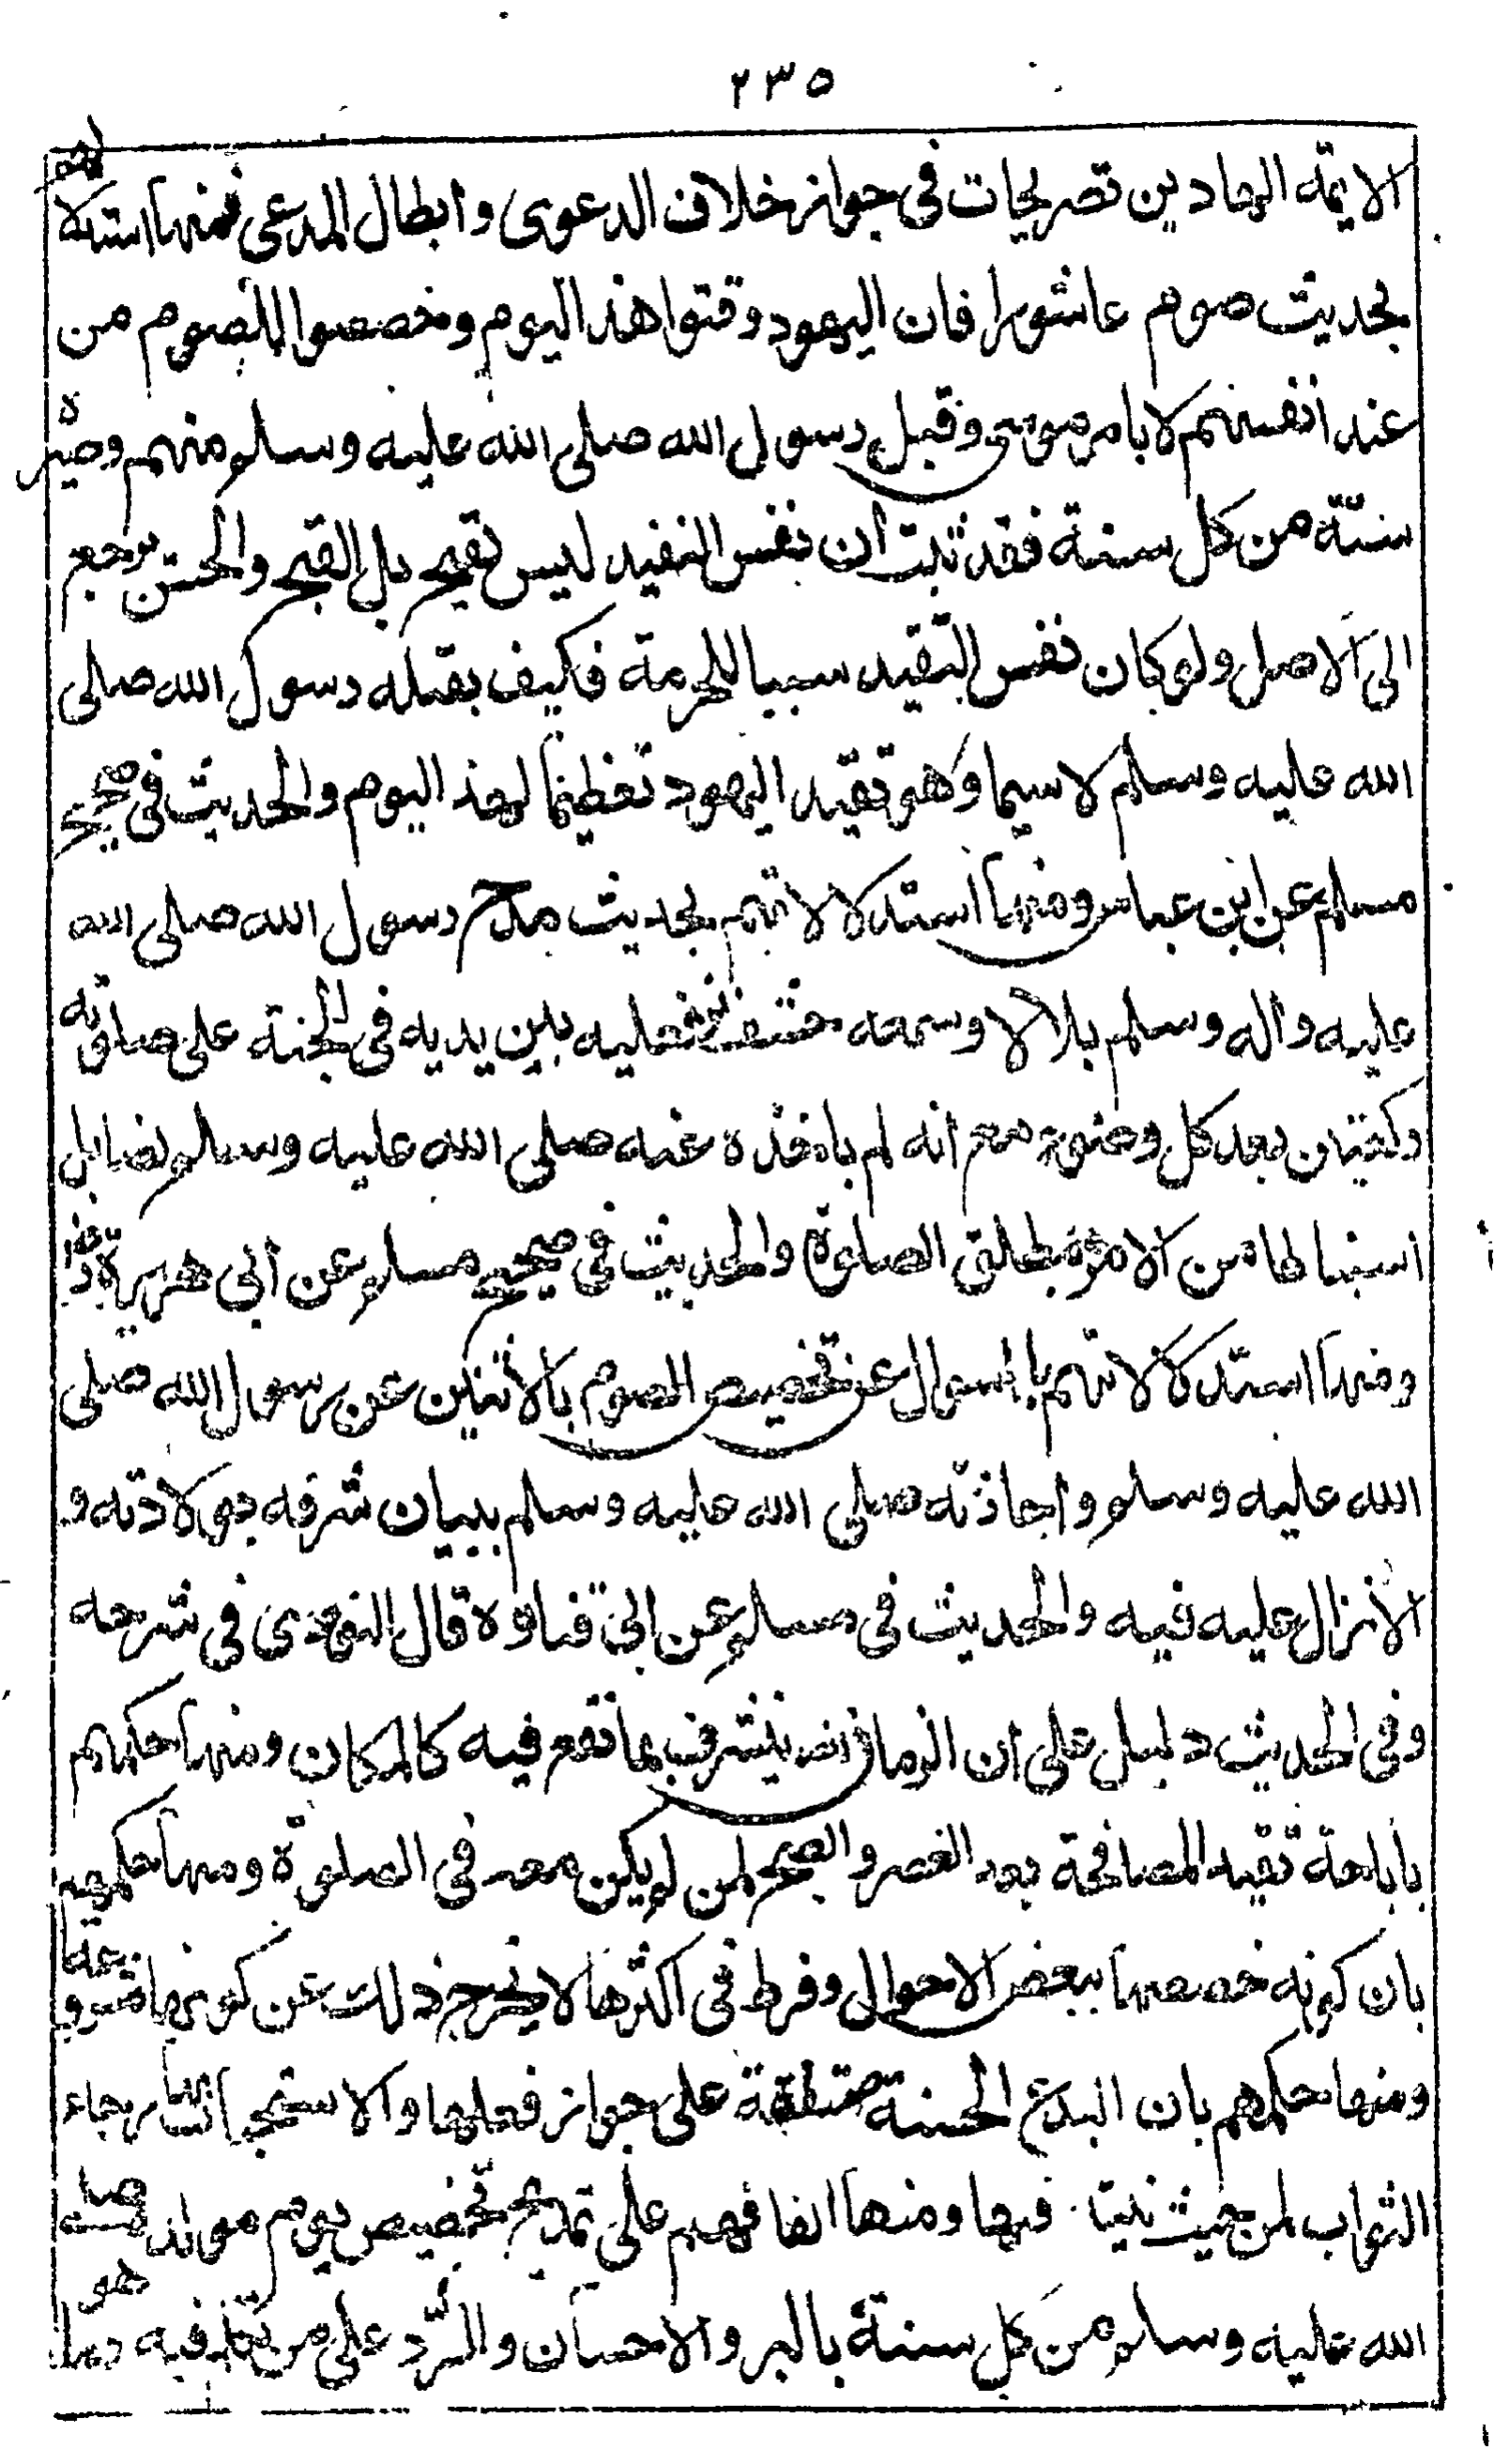 ٢٣٥
الايمة الهادين تصريحات فى جواز خلاف الدعوى وابطال المدعى فمنها استدلالهم
بحديث صوم عاشورا فان اليهود وقتوا هذا اليوم وخصصوا للصوم من
عند انفسهم لا بامر موسى وقبل رسول الله صلى الله عليه وسلم منهم وصيره
سنّة من كل سنة فقد ثبت ان نفس التقيد ليس بقبيح بل القبح والحسن يرجع
الى الاصل ولو كان نفس التقيد سببا للحرمة فكيف يقبله رسول الله صلى
الله عليه وسلم لا سيما وهو تقيد اليهود تعظيما لهذ اليوم والحديث فى صحيح
مسلم عن ابن عباس ومنها استدلالاتهم بحديث مدح رسول الله صلى الله
عليه واله وسلم بلالا وسمعه خشف نعليه بين يديه فى الجنة على صلوته
ركعتين بعد كل وضوء مع انه لم ياخذه عنه صلى الله عليه وسلم بل
استنباطا من الامر بمطلق الصلوة والحديث فى صحيح مسلم عن ابى هريرة
ومنها استدلالاتهم بالسوال عن تخصيص الصوم بالاثنين عن رسول الله صلى
الله عليه وسلم واجازته صلى الله عليه وسلم ببيان شرفه بولادته و
الانزال عليه فيه والحديث فى مسلم عن ابى قتادة قال النووى فى شرحه
وفى الحديث دليل على ان الزمان يتشرف بما تقع فيه كالمكان ومنها حكمهم
باباحة تقيد المصافحة بعد العصر والصبح لمن لم يكن معه فى الصلوة ومنها حكمهم
بان كونه خصصها ببعض الاحوال وفرط فى اكثرها لا يخرج ذلك عن كونها مشروعة
ومنها حكمهم بان البدع الحسنة متفقة على جواز فعلها والاستحباب رجاء
الثواب لمن حيث نيتا فيها ومنها اتفاقهم على تمديح تخصيص يوم مولده صلى
الله عليه وسلم من كل سنة بالبر والاحسان والرّد على من فيه